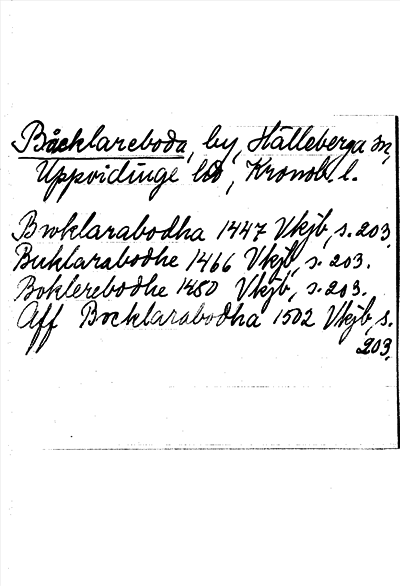 Båcklareboda, by, Hälleberga sn,
Uppvidinge hd, Kronob. l.
Broklarabodha 1447 Vkjb, s. 203.
Buklarabodhe 1466 Vkjb, s. 203.
Boklerebodhe 1480 Vkjb, s. 203.
Aff Bocklarabodha 1502 Vkjb, s.
203.